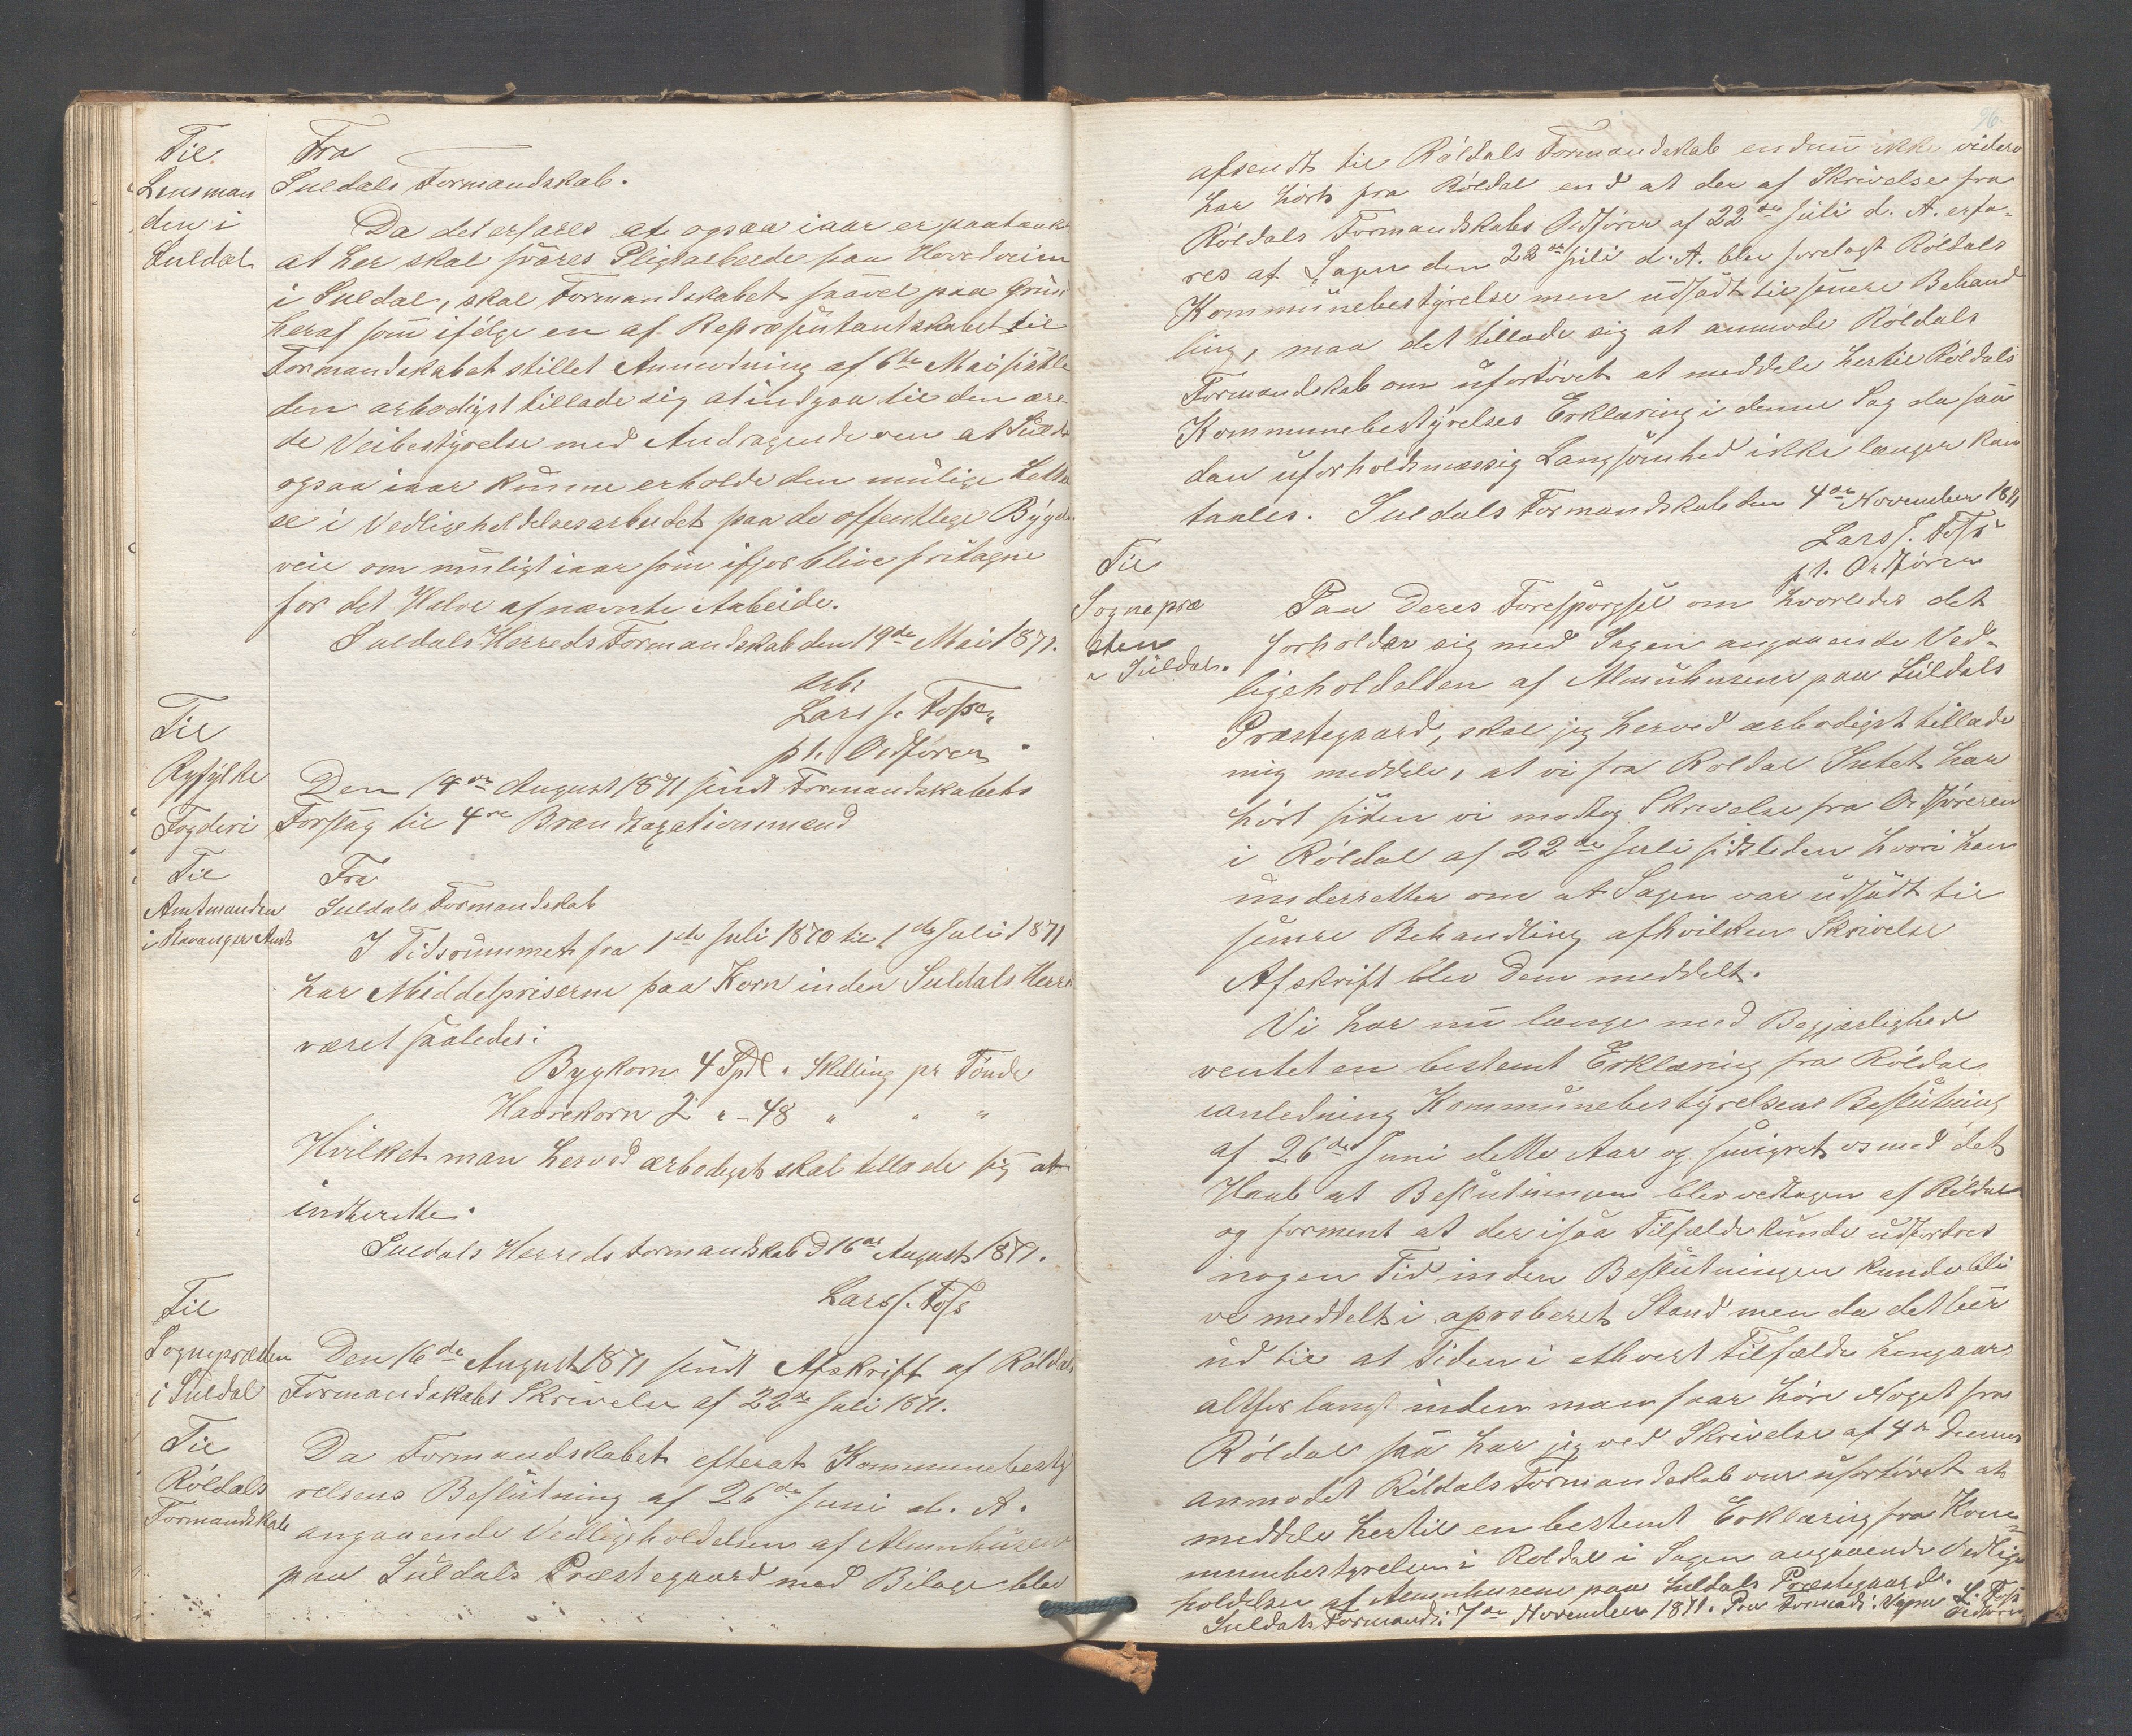 Til
Lensman
den i
Suldal
Fra
Suldals Formandskab.
Da det erfares at ogsaa iaar er paatænkt
at her skal svares Pligtarbeide paa Hovedveien
i Suldal, skal Formandskabet saavel paa Grund
heraf som ifølge en af Repræsentantskabet til
Formandskabet stillet Anmodning af 6te Mai sidstle
den ærbødigst tillade sig at indgaa til den ære
de Veibestyrelse med Andragende om at Suldal
ogsaa iaar kunne erholde den mulige Lettel
se i Vedligeholdelsesarbeidet paa de offentlige Bygde
veie om muligt iaar som ifjor blive fritagne
for det Halve af nævnte Arbeide.
Suldals Herreds Formandskab den 19de Mai 1871.
ærbr
Lars J. Foss
p.t. Ordfører.
Til
Ryfylke
Fogderi
Den 14de August 1871 sendt Formandskabets
Forslag til 4re Brandtaxationsmænd
Til
Amtmanden
i Stavanger Amt
Fra
Suldals Formandskab
I Tidsrummet fra 1ste Juli 1870 til 1ste Juli 1871
har Middelpriserne paa Korn inden Suldals Herred
været saaledes:
Bygkorn 4 Spd. " Skilling pr Tønde
Havrekorn 2 " - 48 " " "
Hvilket man herved ærbødigst skal tillade sig at
indberette.
Suldals Herreds Formandskab d 16de August 1871.
Lars J. Foss
Til
Sognepræsten
i Suldal
Den 16de August 1871 sendt Afskrift af Röldals
Formandskabs Skrivelse af 22de Juli 1871.
Til
Röldals
Formandskab
Da Formandskabet efterat Kommunebesty
relsens Beslutning af 26de Juni d. A.
angaaende Vedligeholdelsen af Almuhusene
paa Suldals Præstegaard med Bilage blev
96.
afsendt til Röldals Formandskab endnu ikke videre
har hørt fra Röldal end at der af Skrivelse fra
Röldals Formandskabs Ordfører af 22de Juli d. A. erfa-
res at Sagen den 22de Juli d. A. blev forelagt Röldals
Kommunebestyrelse men udsadt til senere Behand
ling, maa det tillade sig at anmode Röldals
Formandskab om ufortövet at meddele hertil Röldals
Kommunebestyrelses Erklæring i denne Sag da saa
dan uforholdsmæssig Langsomhed ikke længer kan
taales. Suldals Formandskab den 4de November 1871
Lars J. Foss
p.t. Ordfører
Til
Sognepræ
sten
i Suldal.
Paa Deres Forespørgsel om hvorledes det
forholder sig med Sagen angaaende Ved-
ligeholdelsen af Almuhusene paa Suldals
Præstegaard, skal jeg herved ærbødigst tillade
mig meddele, at vi fra Roldal Intet har
hørt siden vi modtog Skrivelse fra Ordføreren
i Röldal af 22de Juli sidstleden hvori han
underretter om at Sagen var udsadt til
senere Behandling afhvilken Skrivelse
Afskrift blev Dem meddelt.
Vi har nu længe med Begjærlighed
ventet en bestemt Erklæring fra Röldal
ianledning Kommunebestyrelsens Beslutning
af 26de Juni dette Aar og smigret os med det
Haab at Beslutningen blev vedtagen af Röldal
og forment at der isaa Tilfælde kunde udfordres
nogen Tid inden Beslutningen kunde bli
ve meddelt i aproberet Stand men da det seer
ud til at Tiden i ethvert Tilfælde hengaar
altfor langt inden man faar høre Noget fra
Röldal saa har jeg ved Skrivelse af 4de Dennes
anmodet Röldals Formandskab om ufortövet at
meddele hertil en bestemt Erklæring fra Kom-
munebestyrelsen i Roldal i Sagen angaaende Vedlige
holdelsen af Almuhusene paa Suldals Præstegaard.
Suldals Formands: 7de November 1871. Paa Formands: Vegne L. Foss
Ordfører